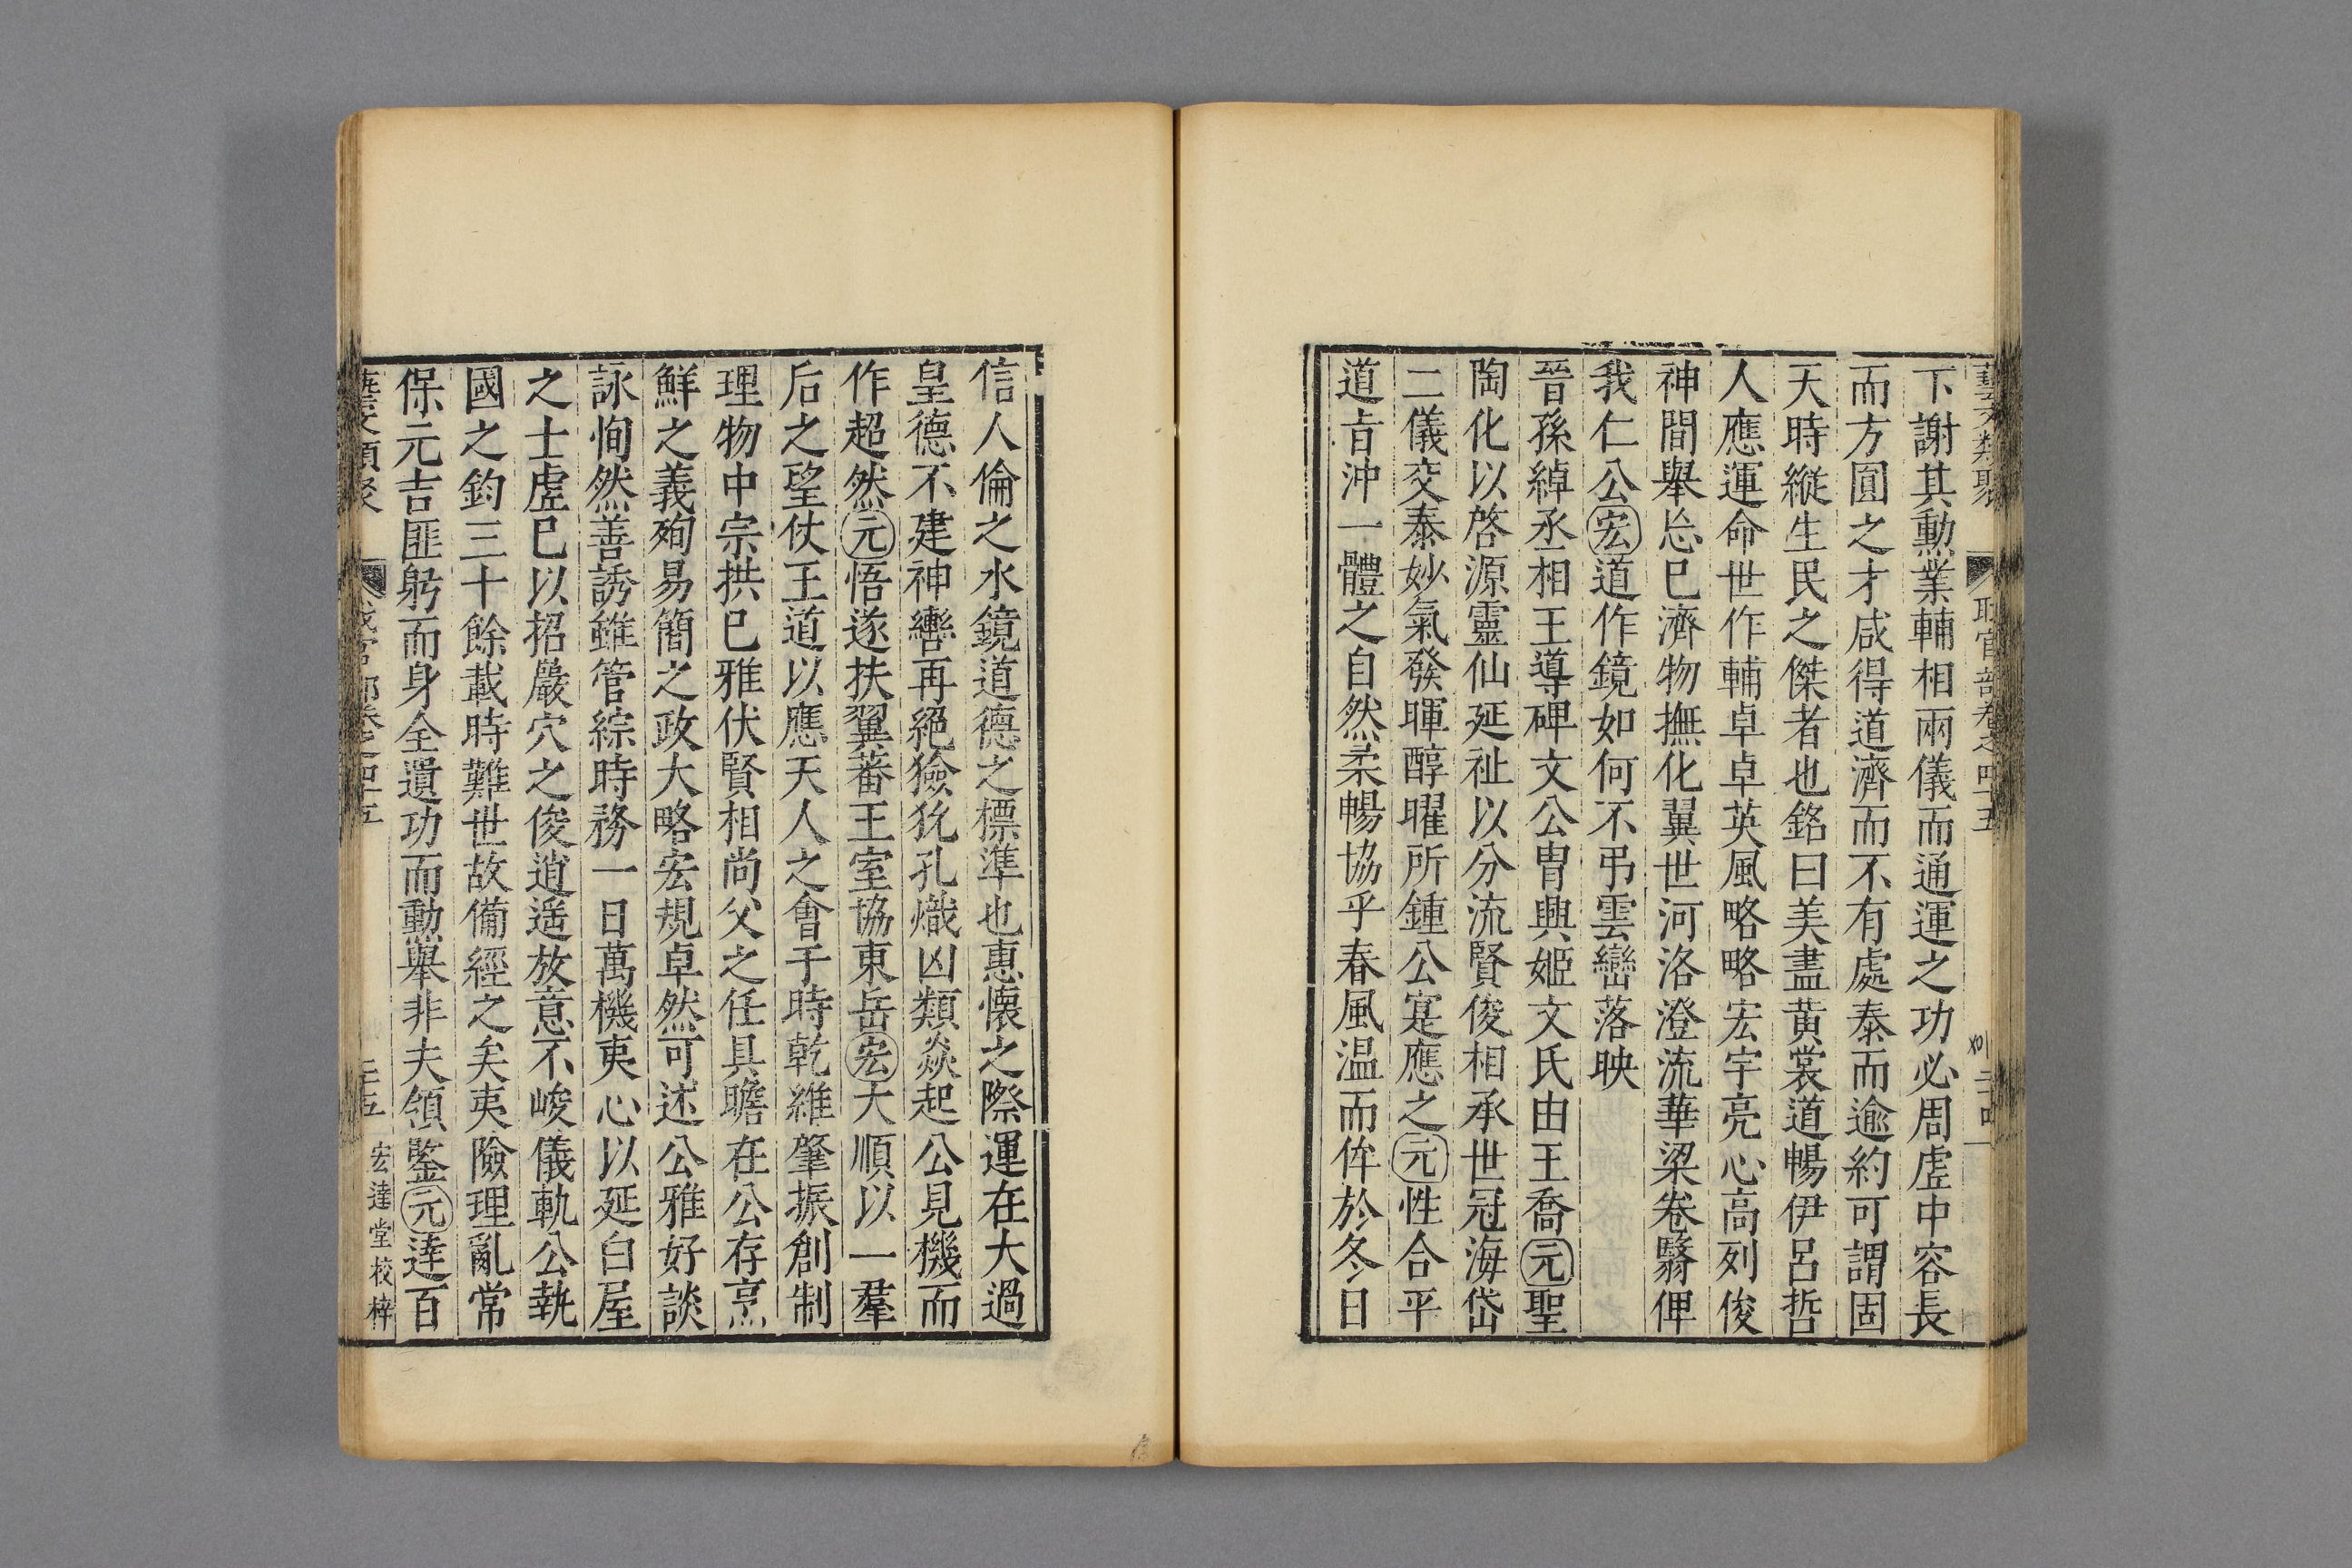 藝文類聚 職官部卷之四十五 二十四
下謝其勳業輔相兩儀而通運之功必周虛中容長
而方圓之才咸得道濟而不有處泰而逾約可謂固
天時縱生民之傑者也銘曰美盡黃裳道暢伊呂哲
人應運命世作輔卓卓英風略略宏宇亮心高列俊
神間舉㤀已濟物撫化翼世河洛澄流華梁卷翳俾
我仁公宏道作鏡如何不弔雲巒落映
晉孫綽丞相王導碑文公冑興姬文氏由王喬元聖
陶化以啓源靈仙延祉以分流賢俊相承世冠海岱
二儀交泰妙氣發暉醇曜所鍾公寔應之元性合平
道旨沖一體之自然柔暢協乎春風温而侔於冬日
信人倫之水鏡道德之標準也惠懷之際運在大過
皇德不建神轡再絕獫狁孔熾凶類焱起公見機而
作超然元悟遂扶翼蕃王室協東岳宏大順以一羣
后之望仗王道以應天人之會于時乾維肇振創制
理物中宗拱已雅伏賢相尚父之任具瞻在公存烹
鮮之義殉易簡之政大略宏規卓然可述公雅好談
詠恂然善誘雖管綜時務一日萬機夷心以延白屋
之士虛已以招巖穴之俊逍遥放意不峻儀軌公執
國之鈞三十餘載時難世故備經之矣夷險理亂常
保元吉匪躬而身全遺功而勳舉非夫領鑒元達百
藝文類聚 職官部卷之四十五 二十五 宏達堂校梓